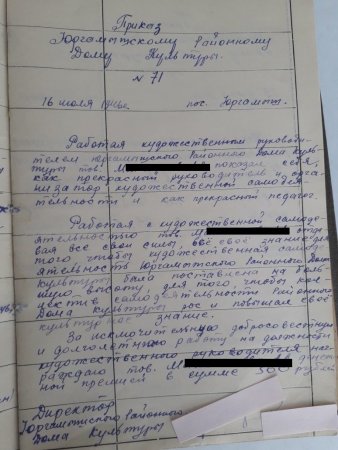 Приказ
Юргамышскому Районному
Дому Культуры.
№ 71
16 июля пос. Юргамыш.
Работая художественным руководи-
телем Юргамышского Районного Дома Куль-
туры тов. М показал себя,
как прекрасный руководитель и орга-
низатор художественной самодея-
тельности и как прекрасный педагог.
Работая с художественной самоде-
ятельностью тов. М отда-
вая все свои силы, всё своё знание для
того чтобы художественная самоде-
ятельность Юргамышского Районного Дома
Культуры была поставлена на боль-
шую высоту, для того, чтобы кол-
лектив самодеятельности Районного
Дома Культуры рос и повышал своё
культурное знание.
За исключительную добросовестную
и долголетнюю работу на должности
художественного руководителя наг-
раждаю тов. М денеж-
ной премией в сумме 300 рублей
Директор
Юргамышского Районного
Дома Культуры